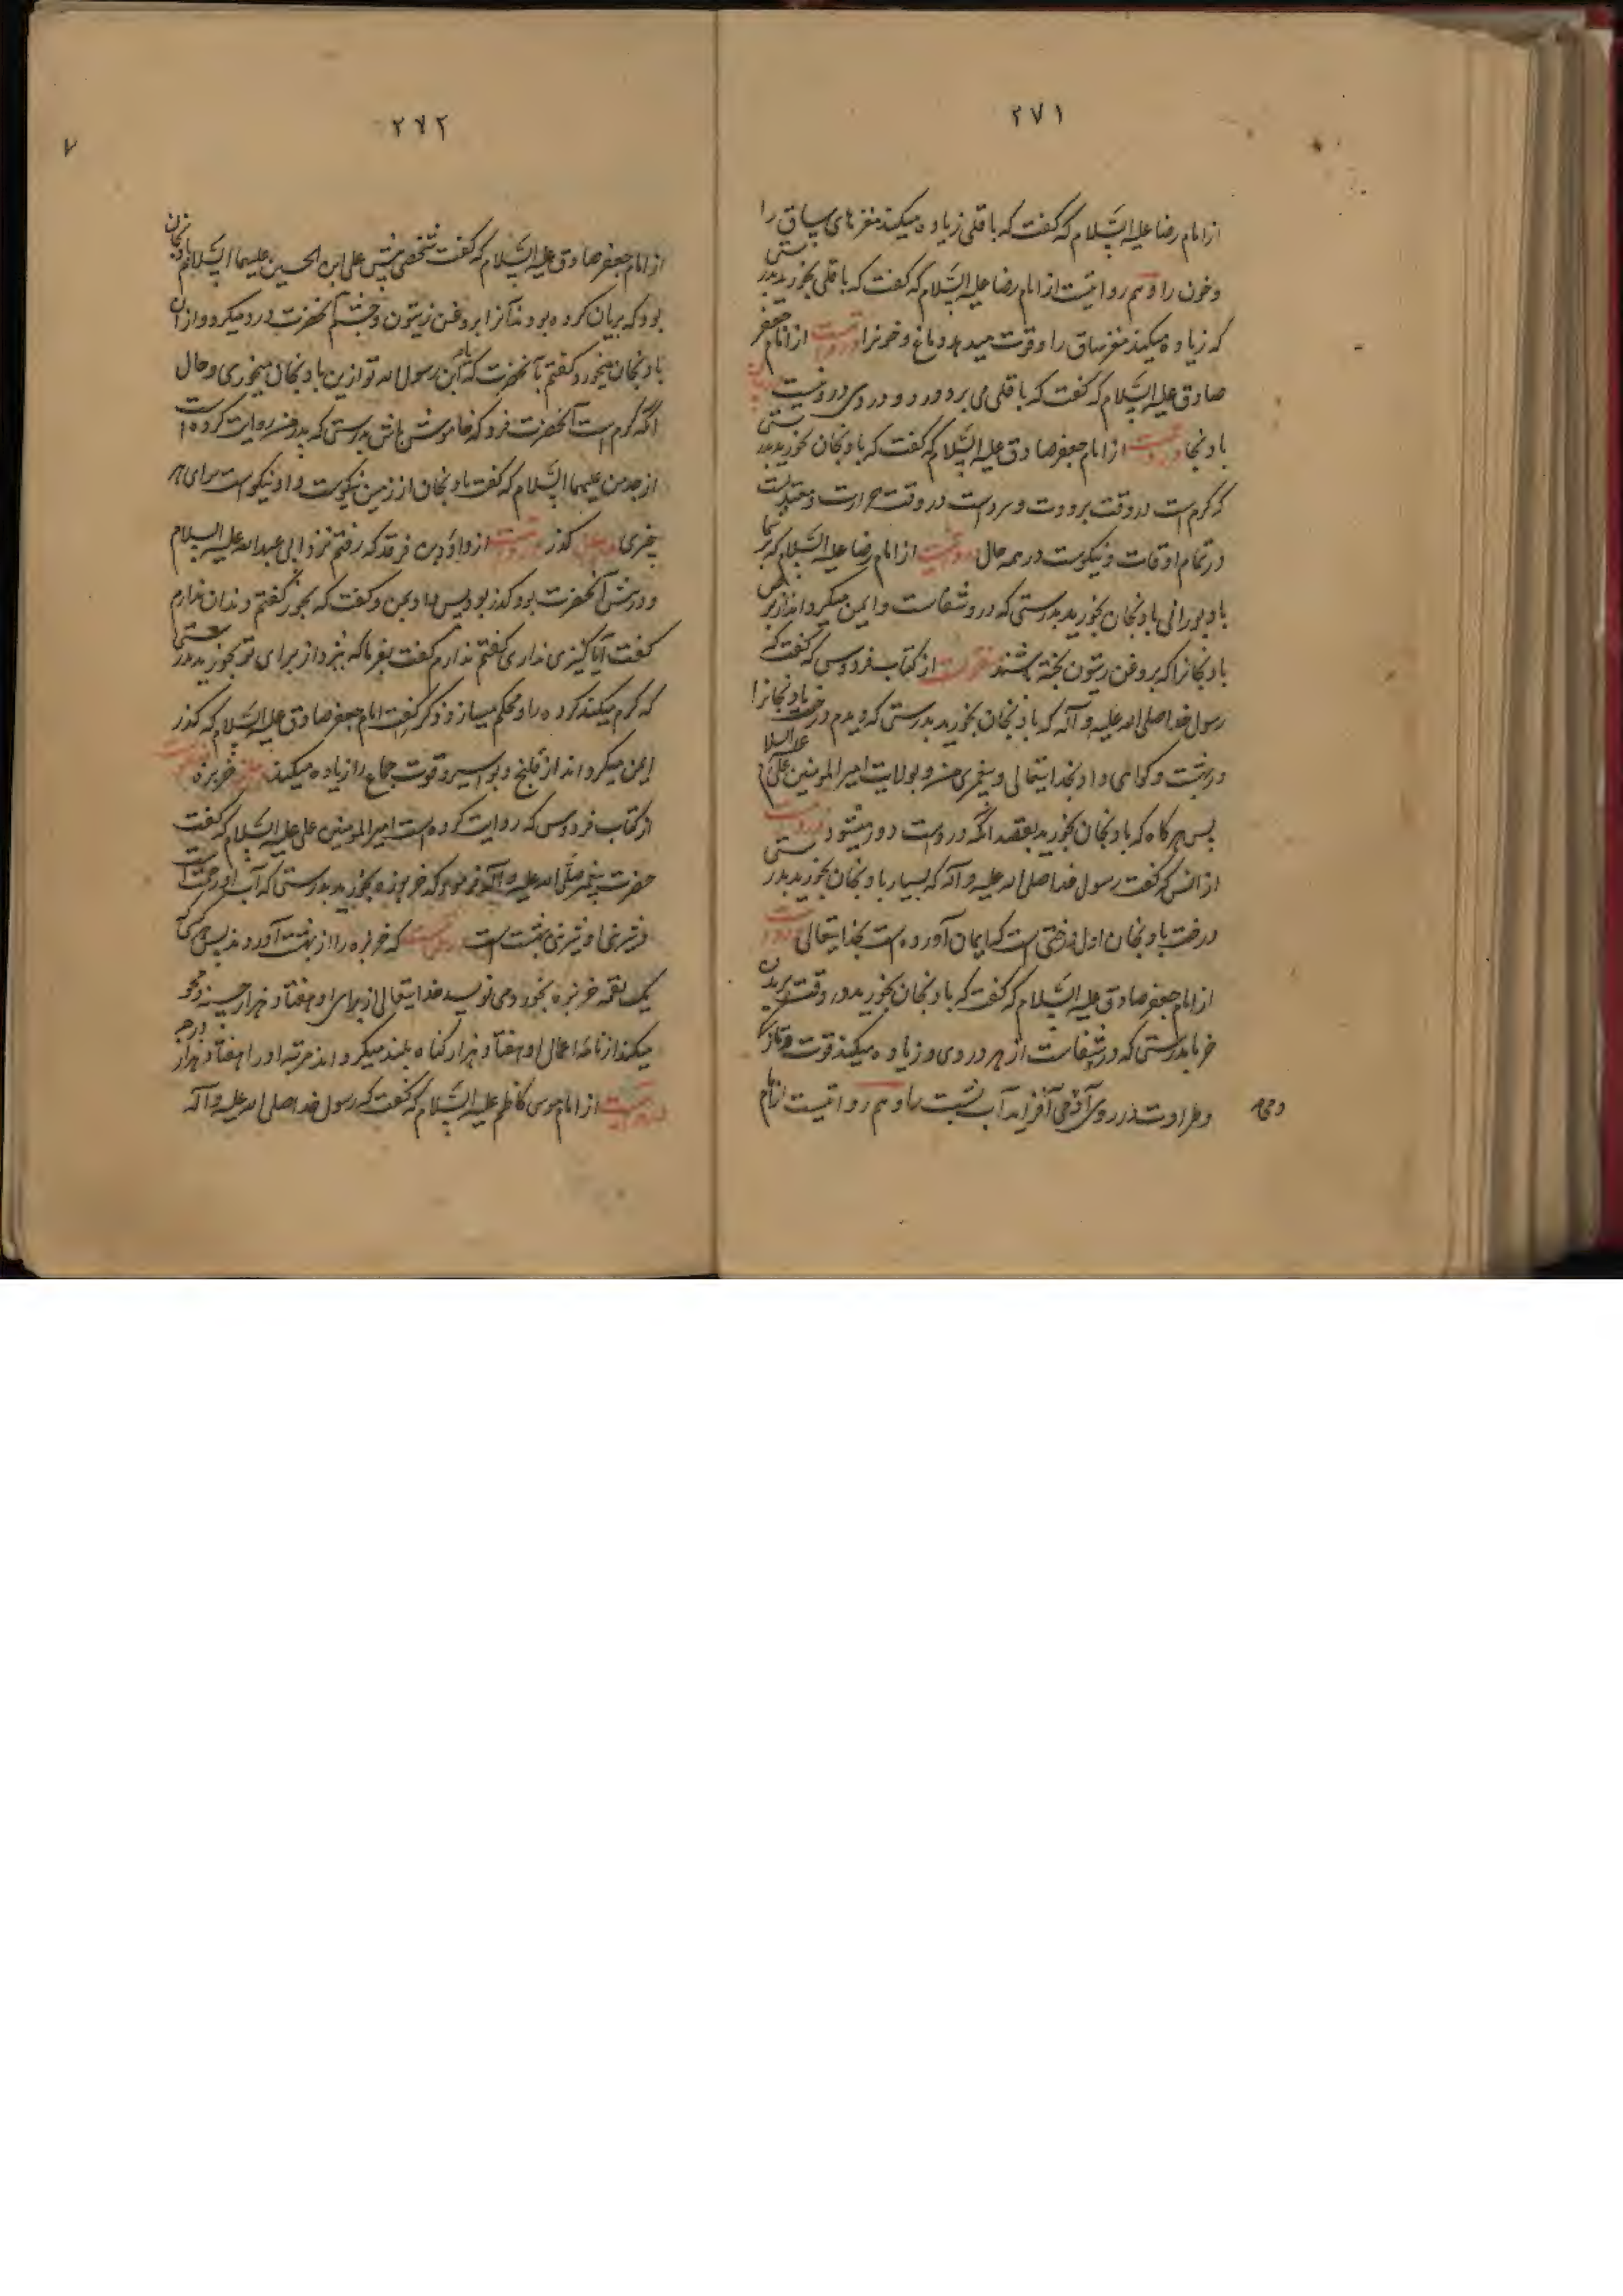 ۲۷۱
از امام رضا علیه السّلام که گفت که باقلی زیاده میکند مغزهای ساق را
و خون را و هم روایتست از امام رضا علیه السّلام که گفت که باقلی بخورید بدرستی
که زیاده میکند مغز ساق را و قوت میدهد دماغ و خونرا از امام جعفر
صادق علیه السّلام که گفت که باقلی می برد درد و دردی درو نیست
بادنجا از امام جعفر صادق علیه السّلام که گفت که بادنجان بخورید بدرستی
که گرمست در وقت برودت و سردست در وقت حرارت و معتدلست
در تمام اوقات و نیکوست در همه حال از امام رضا علیه السّلام که بر شما
باد بورانی بادنجان بخورید بدرستی که درو شفاست و ایمن میگرداند از برص
بادنجانرا که بروغن زیتون پخته باشند از کتاب فردوس که گفت که
رسول خدا صلی الله علیه و آله که بادنجان بخورید بدرستی که دیدم درخت بادنجانرا
در جنت و گواهی داد بخدایتعالی و پیغمبری من و بولایت امیر المومنین علی علیه السلا
پس هر گاه که بادنجان بخورید بقصد آنکه دروست دور میشود
از انس که گفت رسول خدا صلی الله علیه و آله که بسیار بادنجان بخورید بدرستی
درخت بادنجان اول درختی است که ایمان آورده است بخدایتعالی
از امام جعفر صادق علیه السّلام که گفت که بادنجان بخورید در وقت بریدن
خرما بدرستی که درو شفاست از هر دردی و زیاده میکند قوت و تازگی
و طراوت در روی آدمی آفزاید آب پشت را و هم روایتست از امام
۲۷۲
۷
از امام جعفر صادق علیه السّلام که گفت شخصی پیش علی ابن الحسین علیهما السّلام بادنجان
بود که بریان کرده بودند آنرا بروغن زیتون و چشم آنحضرت درد میکرد و از آن
بادنجان میخورد گفتم بآنحضرت که یا بن رسول الله تو ازین بادنجان میخوری و حال
آنکه گرمست آنحضرت فرمود که خاموش باش بدرستی که پدر من روایت کرده است
از جد من علیهما السّلام که گفت بادنجان از زمین نیکوست و او نیکوست برای هر
چیزی گذر از داود بن فرقد که رفتم نزد ابی عبدالله علیه السلام
و در پیش آنحضرت بود گذر بود پس داد بمن و گفت که بخور گفتم دندان ندارم
گفت آیا کنیزی نداری گفتم ندارم گفت بفرما که بپزد از برای تو بخور بدرستی
که گرم میکند گرده را و محکم میسازد ذکر گفت امام جعفر صادق علیه السّلام که گذر
ایمن میگرداند از قلنج و بواسیر و قوت جماع را زیاده میکند خربزه
از کتاب فردوس که روایت کرده است امیر المومنین علی علیه السّلام که گفت
حضرت پیغمبر صلّی الله علیه و آله فرمود که خربوزه بخورید بدرستی که آب او رحمت است
و شیرینی او شیرینی بهشت است که خربزه را از بهشت آوردند پس هر که
یک لقمه خربزه بخورد می نویسد خدایتعالی از برای او هفتاد هزار حسنه و محو
میکند از نامهٔ اعمال او هفتاد هزار گناه بلند میگرداند مرتبه او را هفتاد هزار درجه
از امام موسی کاظم علیه السّلام که گفت که رسول خدا صلی الله علیه و آله